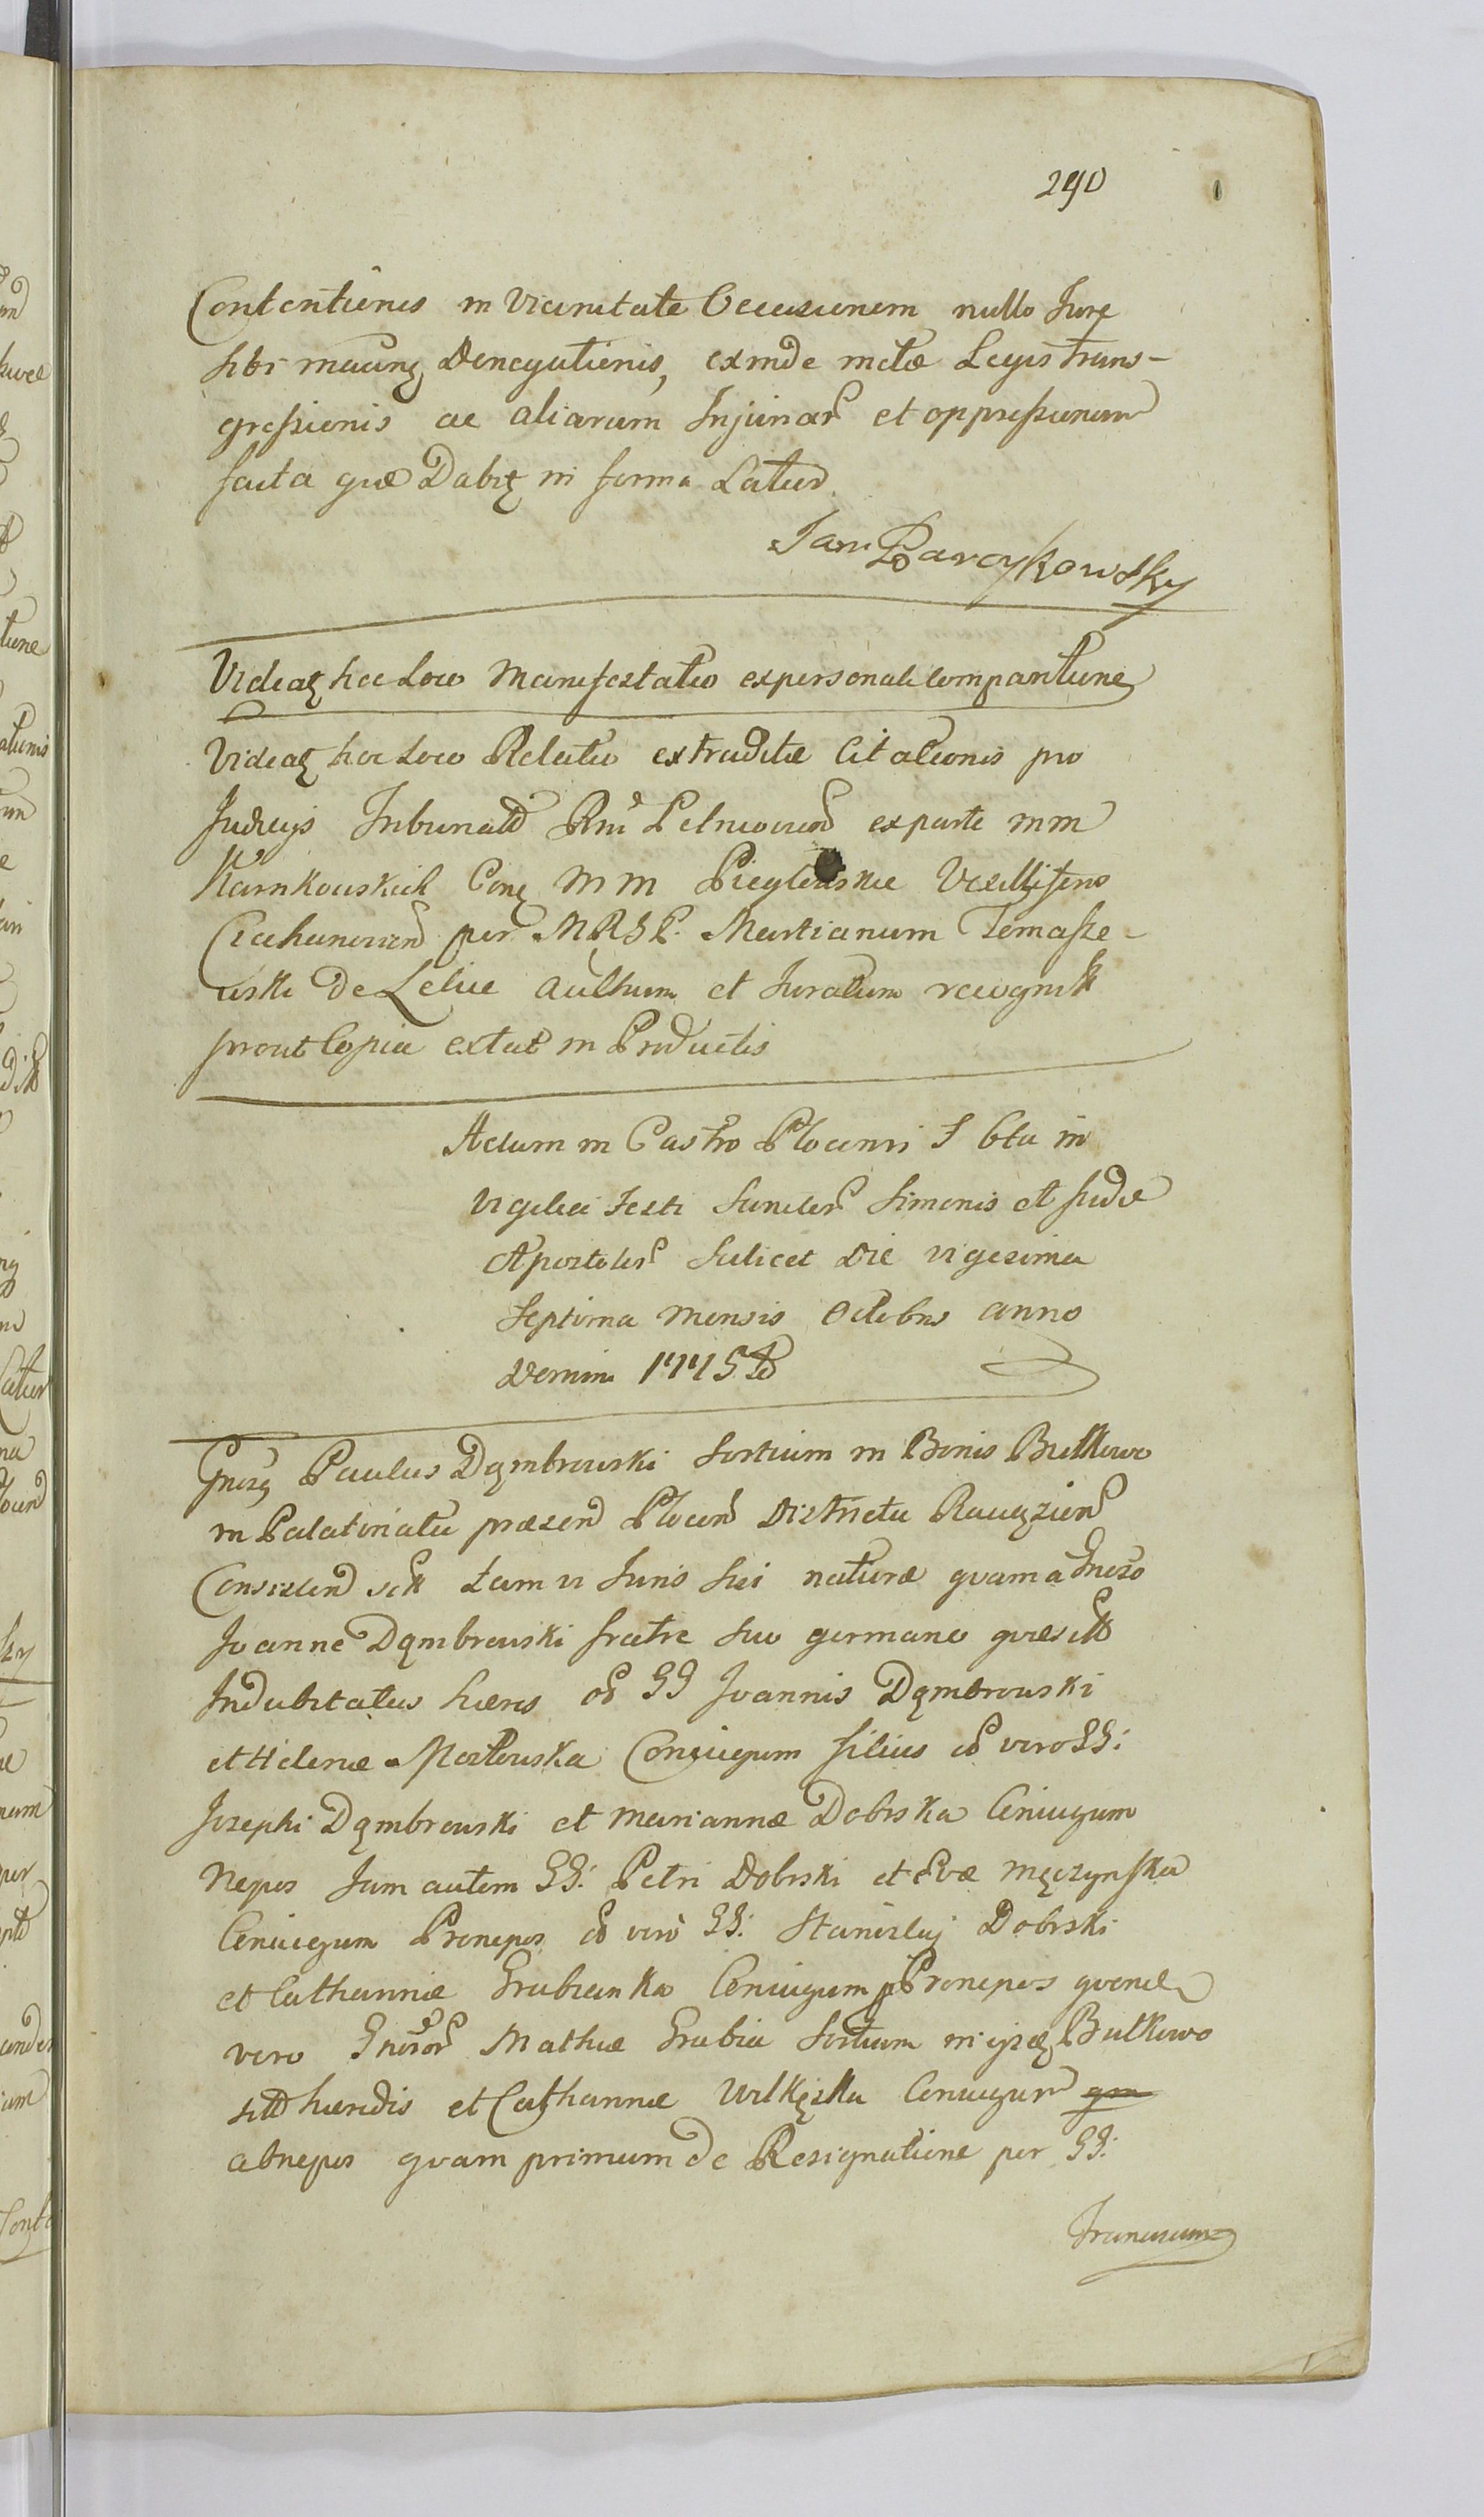 290
Contentionis in Vicinitate Occasionem nullo Jure
sibi macinq Denegationis, exinde metae Legis trans-
gressionis ac aliarum Injuriar et oppressionum
facta quae Dabitʒ in forma Latius
Jan Barcykowsky
Videatʒ hoc Loco Manifestatio ex personali Comparitione
Videatʒ hoc Loco Relatio extraditae Citationis pro
Judicys Tribunald Rni Petricovien ex parte mm
Karnkowskich Conʒ MM Vexilliferos
Ciechanovien per M R S P. Martianum Tomasze-
wski de Lelice aulicum et Juratum recognitt
prout Copia extat in Productis
Actum in Castro Plocensi F 6ta in
vigilia Festi Sanctor Simonis et Judae
Apostolor Scilicet Die vigesima
Septima mensis Octobris anno
Domini 1775to
Gnosʒ Paulus Dąmbrowski Sortium in Bonis Bulkowo
in Palatinatu praesen Plocen Districtu Raciązien
Consisten sitt tam vi Juris sui naturae quam a Gnoso
Joanne Dąmbrowski fratre suo germano quaesitt
Indubitatus haeres olʒ GG Joannis Dąmbrowski
et Helenae Mostowska Conjugum filius olʒ vero GG:
Josephi Dąmbrowski et Mariannae Dobrska Conjugum
Nepos Jam autem GG: Petri Dobrski et Evae Męczynska
Conjugum Pronepos olʒ vero GG: Stanislaj Dobrski
et Catharinae Grabianka Conjugum pPronepos
vero Gnosor Mathiae Grabia Sortium in ijsdʒ Bulkowo
sitt haeredis et Catharinae Wilkęska Conjugum
abnepos quam primum de Resignatione per GG:
Franciscum